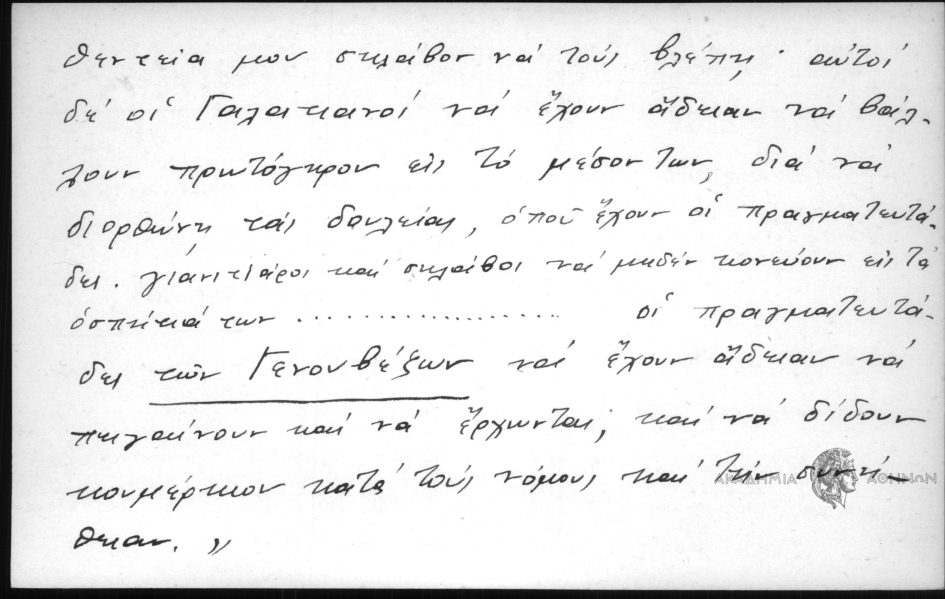 θεντεία μου σκλάβον νά τούς βλέπῃ· αὐτοί
δέ οἱ Γαλατιανοί νά ἔχουν ἄδειαν νά βάλ-
λουν πρωτόγηρον εἰς τό μέσον των, διά νά
διορθώνῃ τάς δουλείας, ὁποῦ ἔχουν οἱ πραγματευτά-
δες. γιανιτζάροι καί σκλάβοι νά μηδέν κονεύουν εἰς τά
ὁσπήτιά των .................. οἱ πραγματευτά-
δες τῶν Γενουβέζων νά ἔχουν ἄδειαν νά
πηγαίνουν καί νά ἔρχωνται, καί νά δίδουν
κουμέρκιον κατά τούς νόμους καί τήν συνή-
θειαν. »
ΑΚΑΔΗΜΙΑ ΑΘΗΝΩΝ